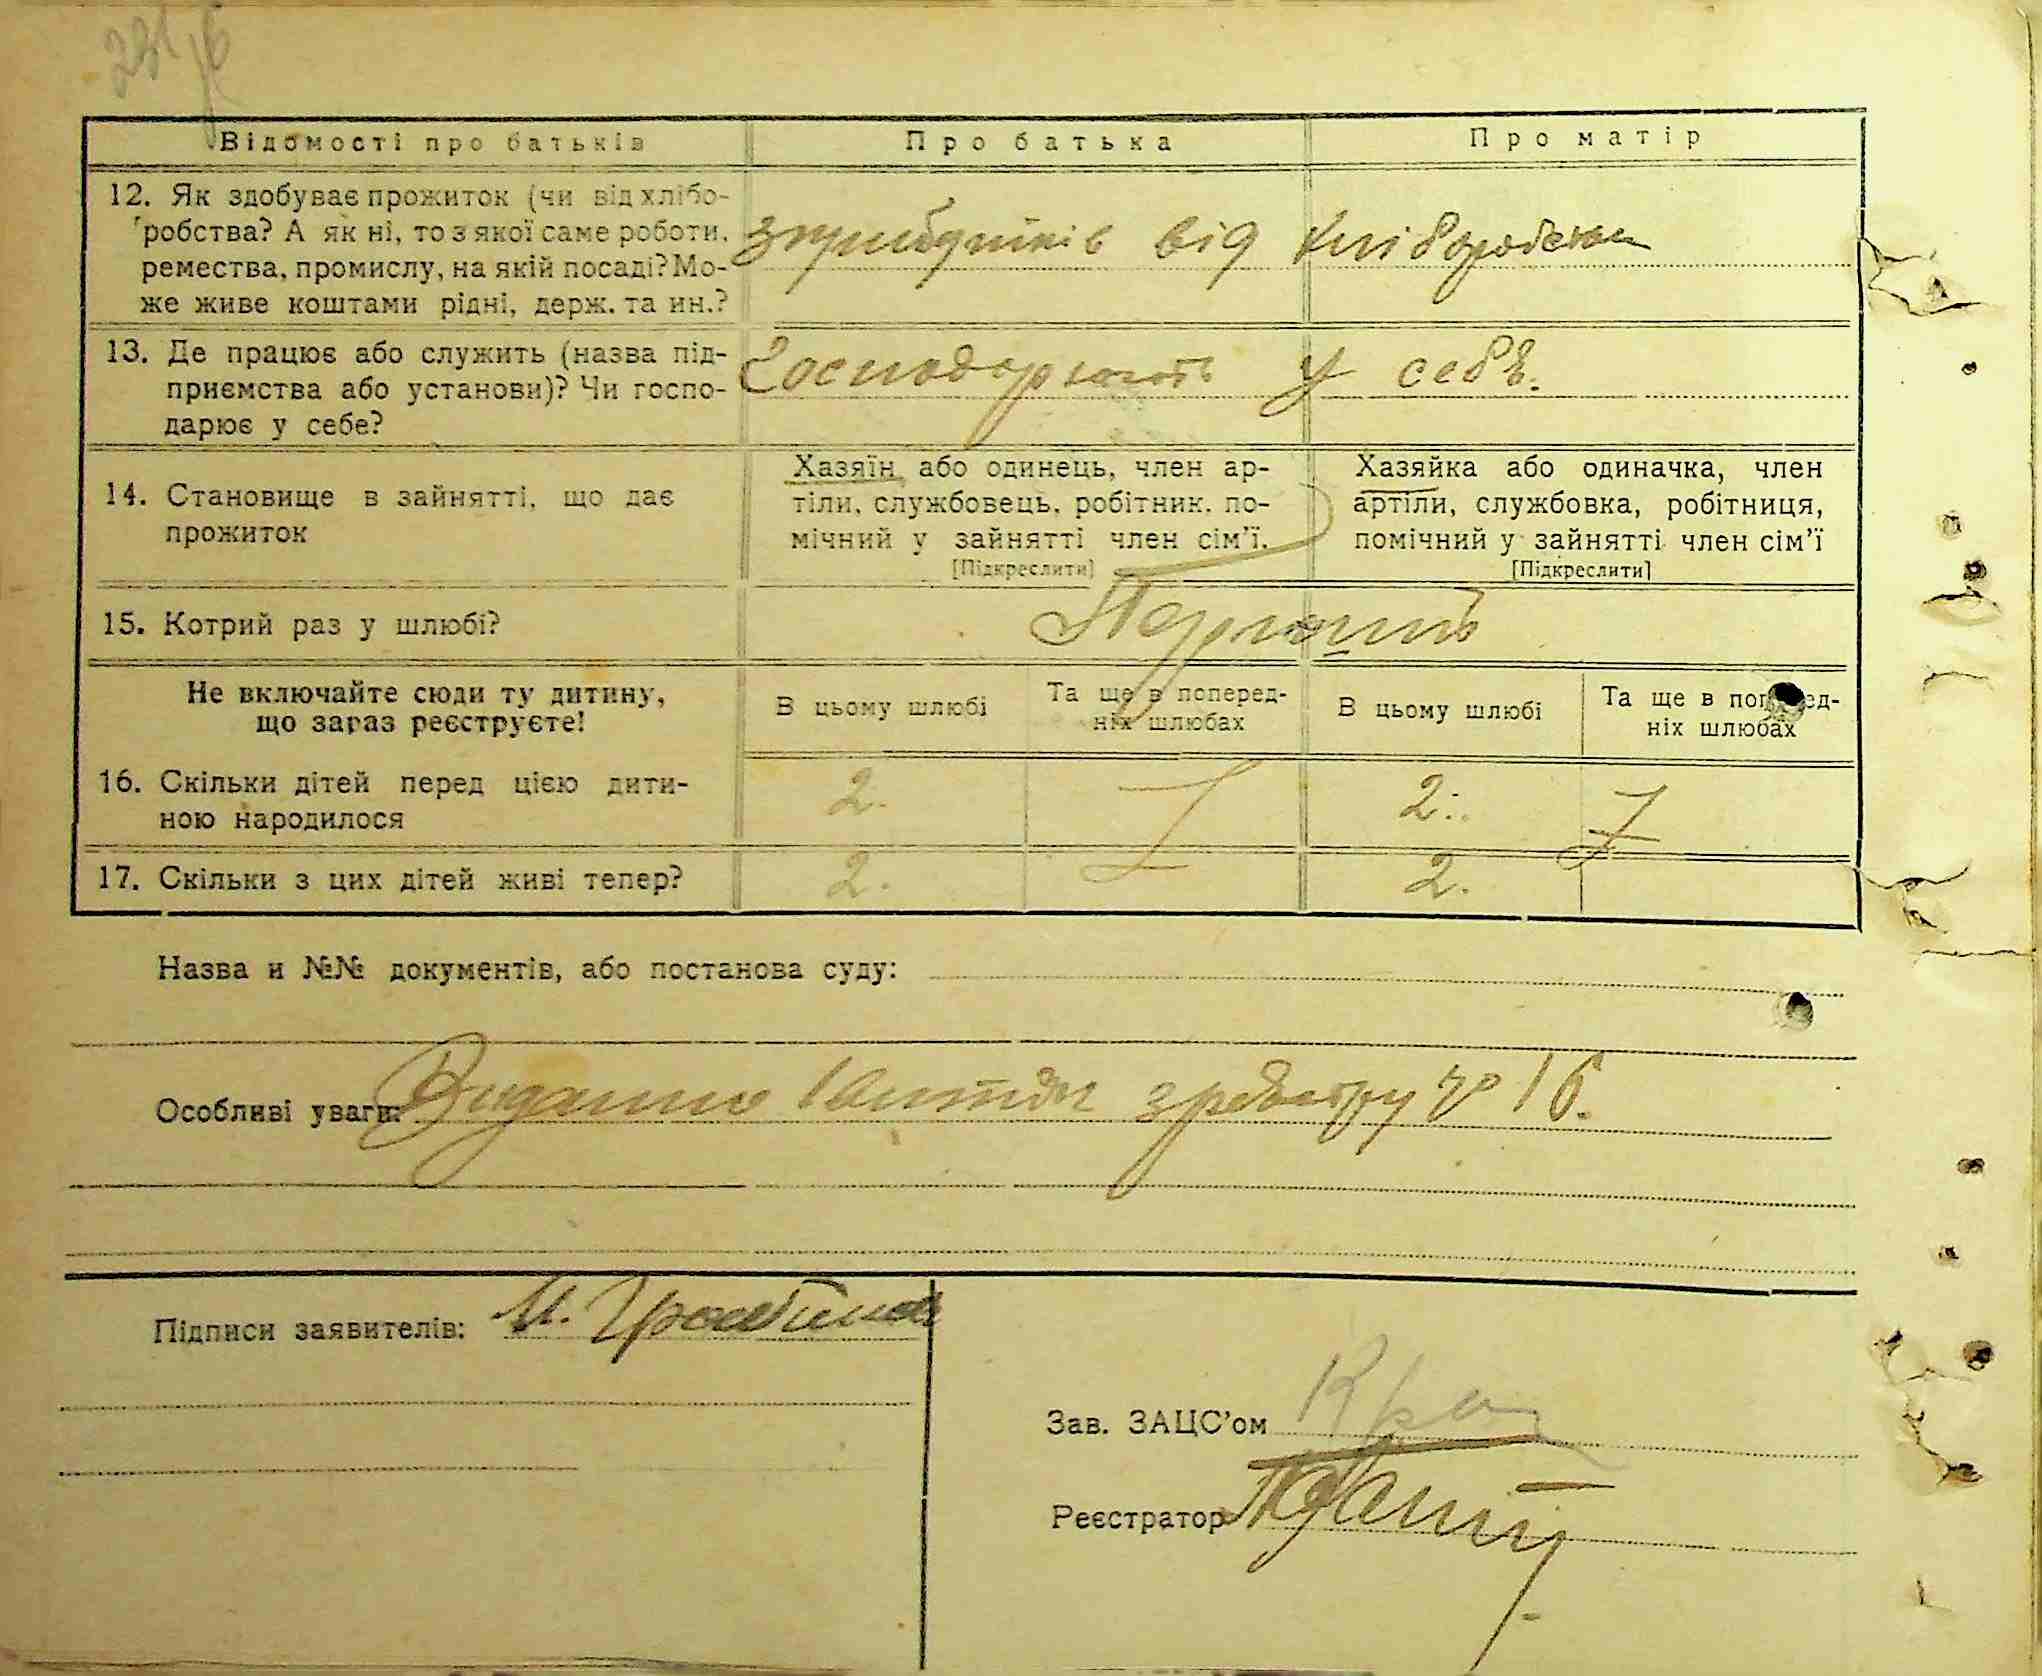 Відомості про батьків
Про батька
Про матір
12. Як здобуває прожиток (чи від хлібо-
робства? А як ні, то з якої саме роботи,
ремества, промислу, на якій посаді? Мо-
же живе коштами рідні, держ. та ин.?
з прибутків від хліборобства
13. Де працює або служить (назва під-
приємства або установи)? Чи госпо-
дарює у себе?
Господарюють у себе.
14. Становище в зайнятті, що дає
прожиток
Хазяїн або одинець, член ар-
тіли, службовець, робітник, по-
мічний у зайнятті член сім'ї.
[Підкреслити]
Хазяйка або одиначка, член
артіли, службовка, робітниця,
помічний у зайнятті член сім'ї
[Підкреслити]
15. Котрий раз у шлюбі?
Не включайте сюди ту дитину,
що зараз реєструєте!
В цьому шлюбі
Та ще в поперед-
ніх шлюбах
В цьому шлюбі
Та ще в поперед-
ніх шлюбах
16. Скільки дітей перед цією дити-
ною народилося
2.
2.
17. Скільки з цих дітей живі тепер?
2.
2.
Назва и №№ документів, або постанова суду:
Особливі уваги: Виданно витяг з реєстру № 16.
Підписи заявителів:
Зав. ЗАЦС'ом
Реєстратор